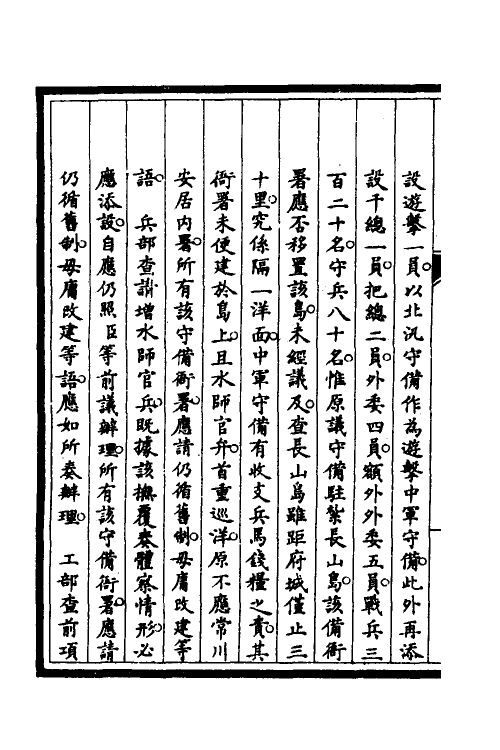 設遊擊一員。以北汛守備作爲遊擊中軍守備。此外再添
設千總一員。把總二員。外委四員。額外外委五員。戰兵三
百二十名。守兵八十名。惟原議守備駐紮長山島。該備衙
署應否移置該島。未經議及。查長山島雖距府城僅止三
十里。究係隔一洋面。中軍守備有收支兵馬錢糧之責。其
衙署未便建於島上。且水師官弁。首重巡洋。原不應常川
安居内署。所有該守備衙署。應請仍循舊制。毋庸改建等
語。　兵部查議增水師官兵。既據該撫覆奏體察情形。必
應添設。自應仍照臣等前議辦理。所有該守備衙署。應請
仍循舊制。毋庸改建等語。應如所奏辦理。　工部查前項